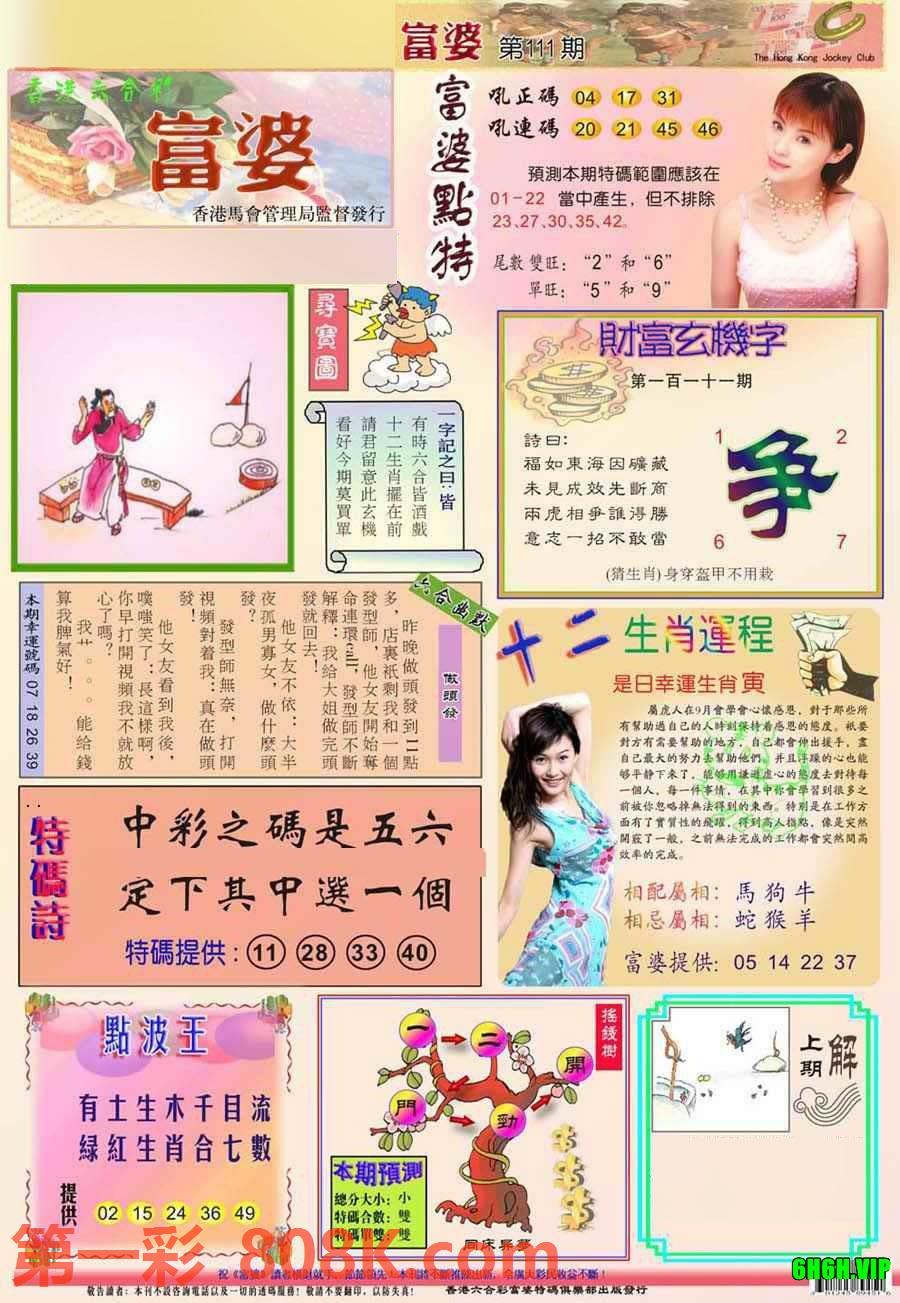 富婆 第111期
The Hong Kong Jockey Club
香港六合彩
富婆
香港馬會管理局監督發行
富婆點特
吼正碼 04 17 31
吼連碼 20 21 45 46
預測本期特碼範圍應該在
01-22 當中產生，但不排除
23、27、30、35、42。
尾數雙旺：“2”和“6”
單旺：“5”和“9”
尋寶圖
一字記之曰：皆
有時六合皆酒戲
十二生肖擺在前
請君留意此玄機
看好今期莫買單
財富玄機字
第一百一十一期
詩曰：
福如東海因礦藏
未見成效先斷商
兩虎相爭誰得勝
意志一招不敢當
1 2
爭
6 7
(猜生肖)身穿盔甲不用栽
六合幽默
做頭發
昨晚做頭發到11點
多，店裏衹剩我和一個
發型師，他女友開始奪
命連環call，發型師不斷
解釋：我給大姐做完頭
發就回去！
他女友不依：大半
夜孤男寡女，做什麼頭
發？
發型師無奈，打開
視頻對着我：真在做頭
發！
他女友看到我後，
噗嗤笑了：長這樣啊，
你早打開視頻我不就放
心了嗎？
我艹。。。能給錢
算我脾氣好！
本期幸運號碼 07 18 26 39
十二生肖運程
是日幸運生肖寅
屬虎人在9月會學會心懷感恩，對于那些所
有幫助過自己的人時刻保持着感恩的態度。衹要
對方有需要幫助的地方，自己都會伸出援手，盡
自己最大的努力去幫助他們，并且浮躁的心也能
够平静下来了，能够用謙遜虛心的態度去對待每
一個人，每一件事情，在其中你會學習到很多之
前被你忽略掉無法得到的東西。特別是在工作方
面有了實質性的飛躍，得到高人指點，像是突然
開竅了一般，之前無法完成的工作都會突然間高
效率的完成。
相配屬相：馬狗牛
相忌屬相：蛇猴羊
富婆提供：05 14 22 37
特碼詩
中彩之碼是五六
定下其中選一個
特碼提供：11 28 33 40
點波王
有土生木千目流
綠紅生肖合七數
提供 02 15 24 36 49
搖錢樹
一 二 開
門 勁
本期預測
總分大小：小
特碼合數：雙
特碼單雙：雙
同床异夢
上期解
第一彩 808K.com
6H6H.VIP
祝《富婆》讀者橫財就手，節節領先！本刊將不斷推陳出新，令廣大彩民收益不斷！
敬告讀者：本刊不設咨詢電話以及一切的透碼服務！敬請不要翻印，以防失真！
香港六合彩富婆特碼俱樂部出版發行